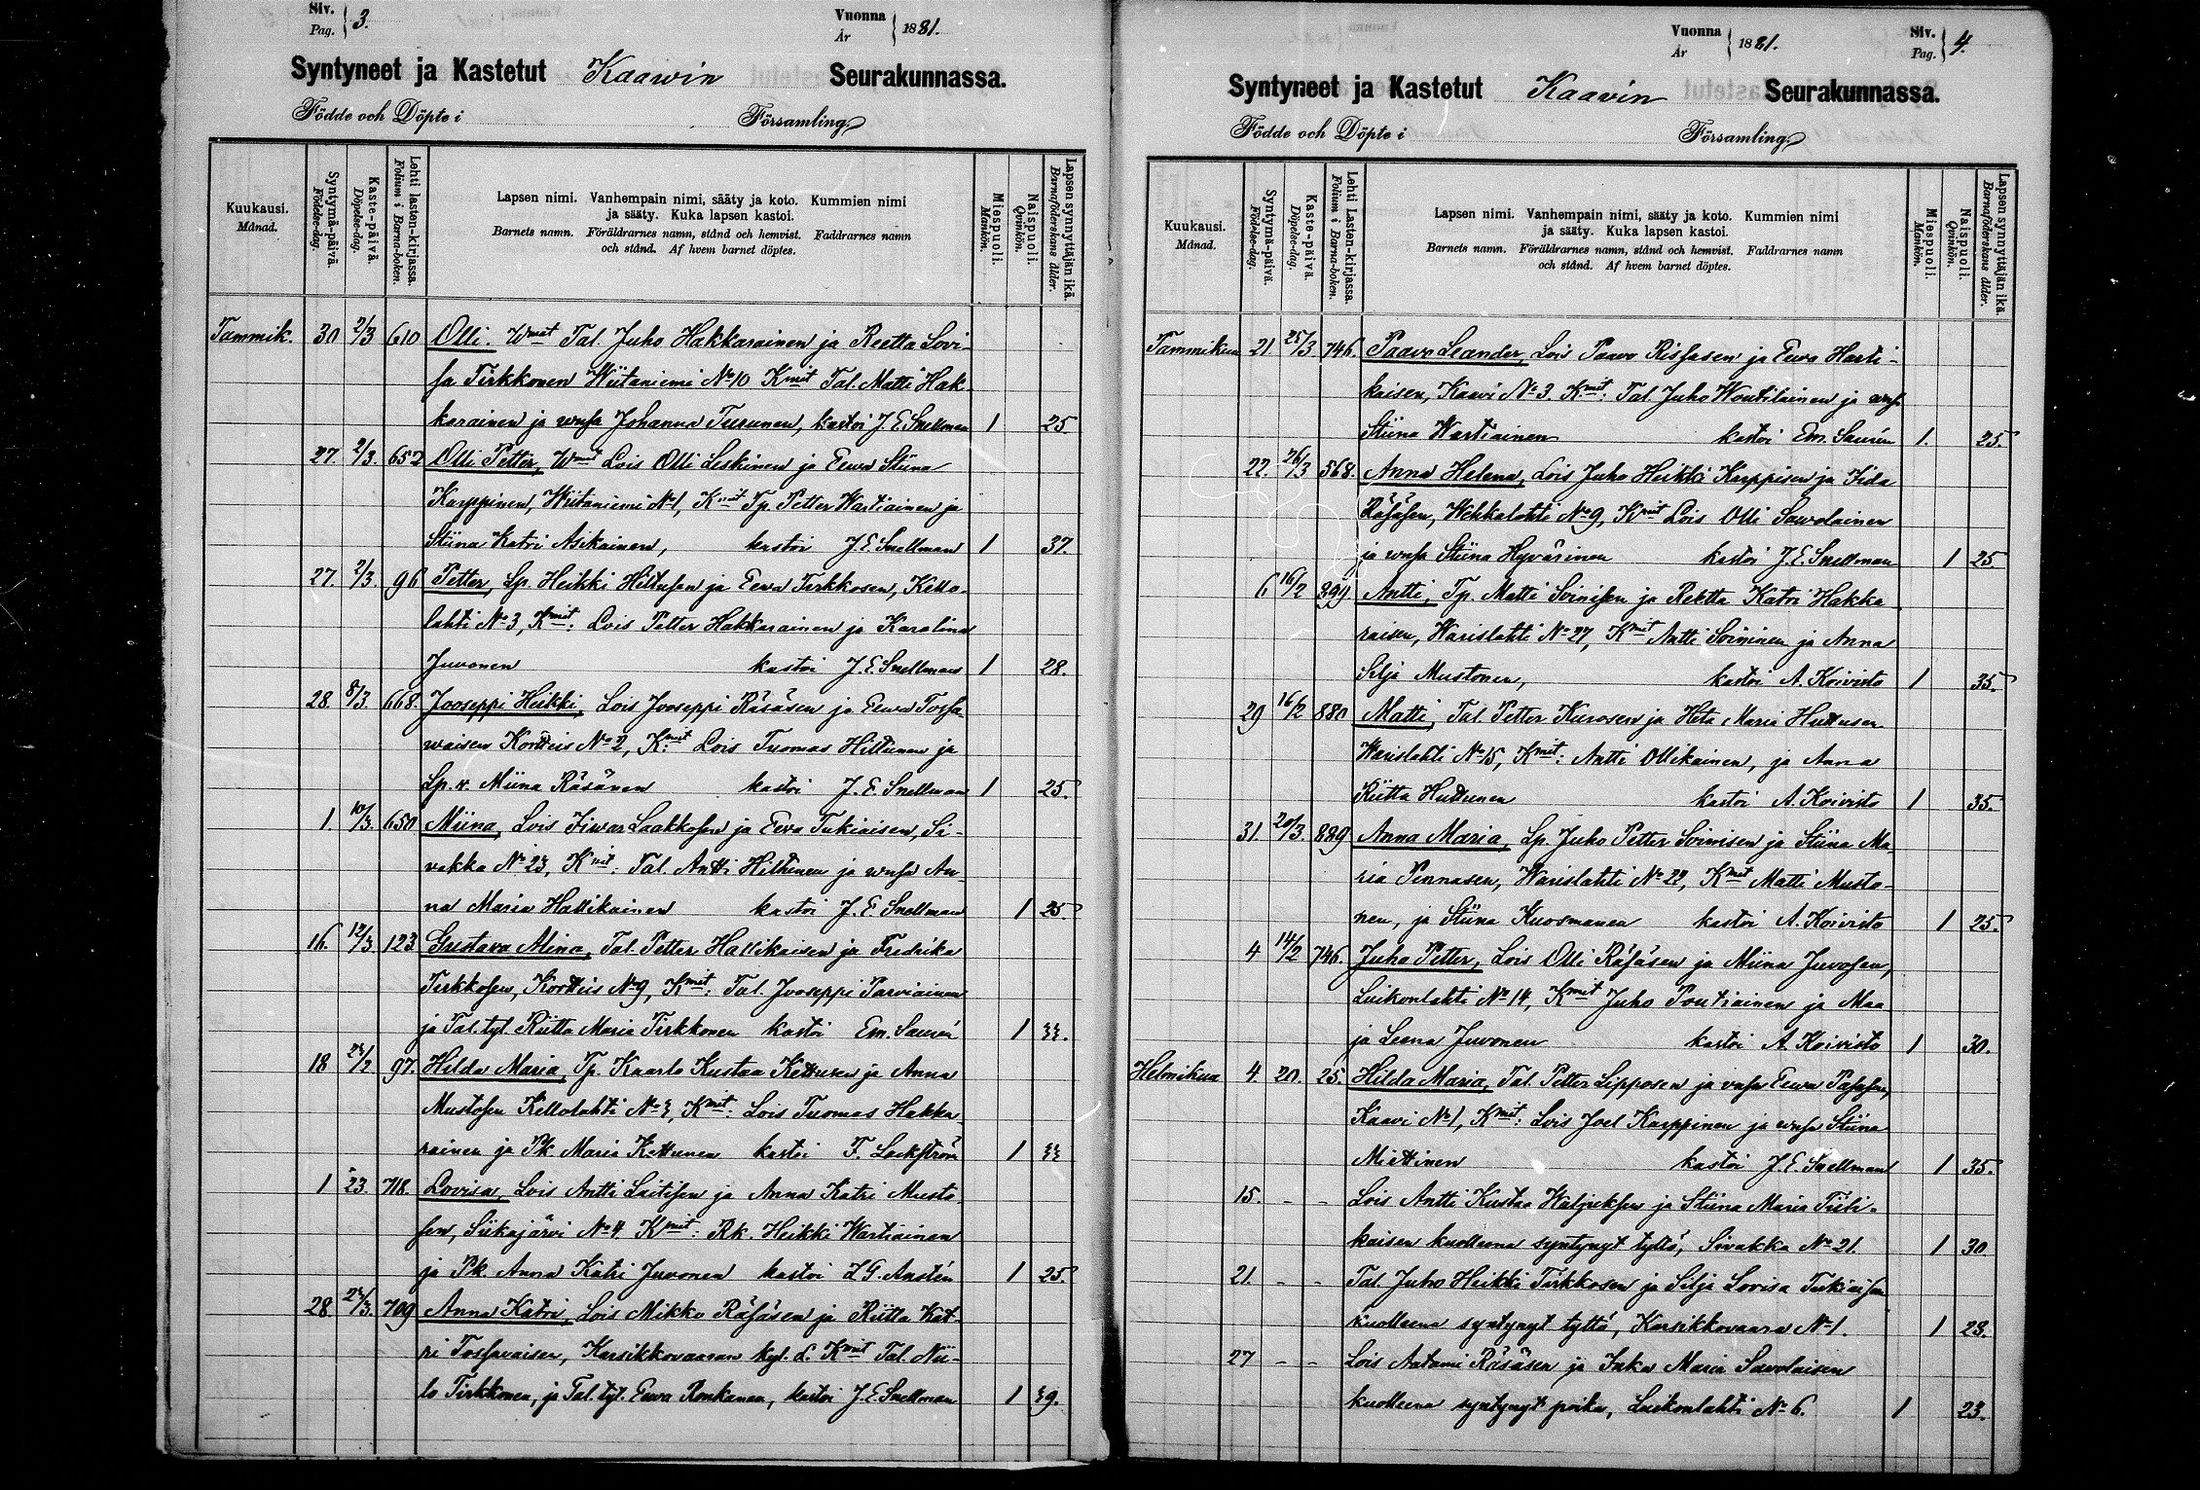 Siv. Pag. 3. Vuonna År 1881.
Syntyneet ja Kastetut Kaawin Seurakunnassa.
Födde och Döpte i Församling.
Kuukausi. Månad.
Syntymä-päivä. Födelse-dag.
Kaste-päivä. Döpelse-dag.
Lehti lasten-kirjassa. Folium i Barna-boken.
Lapsen nimi. Vanhempain nimi, sääty ja koto. Kummien nimi
ja sääty. Kuka lapsen kastoi.
Barnets namn. Föräldrarnes namn, stånd och hemvist. Faddrarnes namn
och stånd. Af hvem barnet döptes.
Miespuoli. Mankön.
Naispuoli. Qvinkön.
Lapsen synnyttäjän ikä. Barnaföderskans ålder.
Tammik. 30 2/3 610 Olli. Wmat Tal. Juho Hakkarainen ja Reetta Lovi-
sa Tirkkonen Wiitaniemi No 10 Kmit Tal. Matti Hak-
karainen ja wmsa Johanna Turunen, kastoi J. E. Snellman 1 25
27. 2/3. 652 Olli Petter, Wmat Lois Olli Leskinen ja Eewa Stiina
Karppinen, Wiitaniemi No 1, Kmit Tp. Petter Wartiainen ja
Stiina Katri Asikainen, kastoi J. E. Snellman 1 37.
27. 2/3. 96 Petter, Lp. Heikki Hiltusen ja Eewa Tirkkosen, Kello-
lahti No 3, Kmit: Lois Petter Hakkarainen ja Karolina
Juvonen kastoi J. E. Snellman 1 28.
28. 8/3. 668. Jooseppi Heikki, Lois Jooseppi Räsäsen ja Eewa Tossa-
waisen Kortteis No 2, Kmit Lois Tuomas Hiltunen ja
Lp. v. Miina Räsänen kastoi J. E. Snellman 1 25.
1. 10/3. 650 Miina, Lois Iiwar Laakkosen ja Eeva Tukiaisen, Si-
vakka No 23, Kmit: Tal. Antti Hiltunen ja wmsa An-
na Maria Hallikainen kastoi J. E. Snellman 1 25
16. 12/3 123. Gustava Alina, Tal. Petter Hallikaisen ja Fredrika
Tirkkosen, Kortteis No 9, Kmit: Tal. Jooseppi Parviainen
ja Tal. tyt. Riitta Maria Tirkkonen kastoi Em. Saurén 1 33.
18 24/2 97. Hilda Maria, Tp. Kaarlo Kustaa Kettusen ja Anna
Mustosen Kellolahti No 3, Kmit: Lois Tuomas Hakka-
rainen ja Pk. Maria Kettunen kastoi F. Lackström 1 33
1 23. 718. Lovisa, Lois Antti Laitisen ja Anna Katri Musto-
sen, Siikajärvi No 4. Kmit: Rk. Heikki Wartiainen
ja Pk. Anna Katri Juvonen kastoi L. G. Anstén 1 25.
28 23/3. 709 Anna Katri, Lois Mikko Räsäsen ja Riitta Kat-
ri Tossavaisen, Karsikkovaaran kyl. L. Kmit Tal. Nii-
lo Tirkkonen, ja Tal. tyt. Eewa Ronkanen, kastoi J. E. Snellman 1 39.
Vuonna År 1881. Siv. Pag. 4.
Syntyneet ja Kastetut Kaavin Seurakunnassa.
Födde och Döpte i Församling.
Kuukausi. Månad.
Syntymä-päivä. Födelse-dag.
Kaste-päivä. Döpelse-dag.
Lehti Lasten-kirjassa. Folium i Barna-boken.
Lapsen nimi. Vanhempain nimi, sääty ja koto. Kummien nimi
ja sääty. Kuka lapsen kastoi.
Barnets namn. Föräldrarnes namn, stånd och hemvist. Faddrarnes namn
och stånd. Af hvem barnet döptes.
Miespuoli. Mankön.
Naispuoli. Qvinkön.
Lapsen synnyttäjän ikä. Barnaföderskans ålder.
Tammikuu 21 25/3 746. Paavo Leander, Lois Paavo Rissasen ja Eewa Harti-
kaisen, Kaavi No 3. Kmit: Tal. Juho Woutilainen ja wmsa
Stiina Wartiainen kastoi Em. Saurén 1. 25.
22. 26/3 568. Anna Helena, Lois Juho Heikki Karppisen ja Iida
Räsäsen, Wehkalahti No 9, Kmit Lois Olli Sawolainen
ja wmsa Stiina Hyvärinen kastoi J. E. Snellman 1 25
6 16/2 899 Antti, Tp. Matti Soinisen ja Reetta Katri Hakka-
raisen, Warislahti No 27, Kmit Antti Soininen ja Anna
Silja Mustonen, kastoi A. Koivisto 1 35.
29 16/2 880 Matti, Tal. Petter Kurosen ja Heta Maria Huttusen
Warislahti No 15, Kmit: Antti Ollikainen, ja Anna
Riitta Huttunen kastoi A. Koivisto 1 35.
31. 20/3. 889 Anna Maria, Lp. Juho Petter Soinisen ja Stiina Ma-
ria Pennasen, Warislahti No 22, Kmit Matti Musto-
nen, ja Stiina Kuosmanen kastoi A. Koivisto 1 25.
4 14/2 746. Juho Petter, Lois Olli Räsäsen ja Miina Juvosen,
Luikonlahti No 14, Kmit Juho Poutiainen ja Maa-
ja Leena Juvonen kastoi A. Koivisto 1 30.
Helmikuu 4. 20. 25. Hilda Maria, Tal. Petter Lipposen ja vmsa Eewa Pasasen,
Kaavi No 1, Kmit: Lois Joel Karppinen ja wmsa Stiina
Miettinen kastoi J. E. Snellman 1 35.
15. - - Lois Antti Kustaa Waljuksen ja Stiina Maria Tiili-
kaisen kuolleena syntynyt tyttö, Sivakka No 21. 1 30
21. - - Tal. Juho Heikki Tirkkosen ja Silja Lovisa Tukiaisen
kuolleena syntynyt tyttö, Karsikkovaara No 1. 1 28.
27 - - Lois Aatami Räsäsen ja Inka Maria Savolaisen
kuolleena syntynyt poika, Luikonlahti No 6. 1 23.